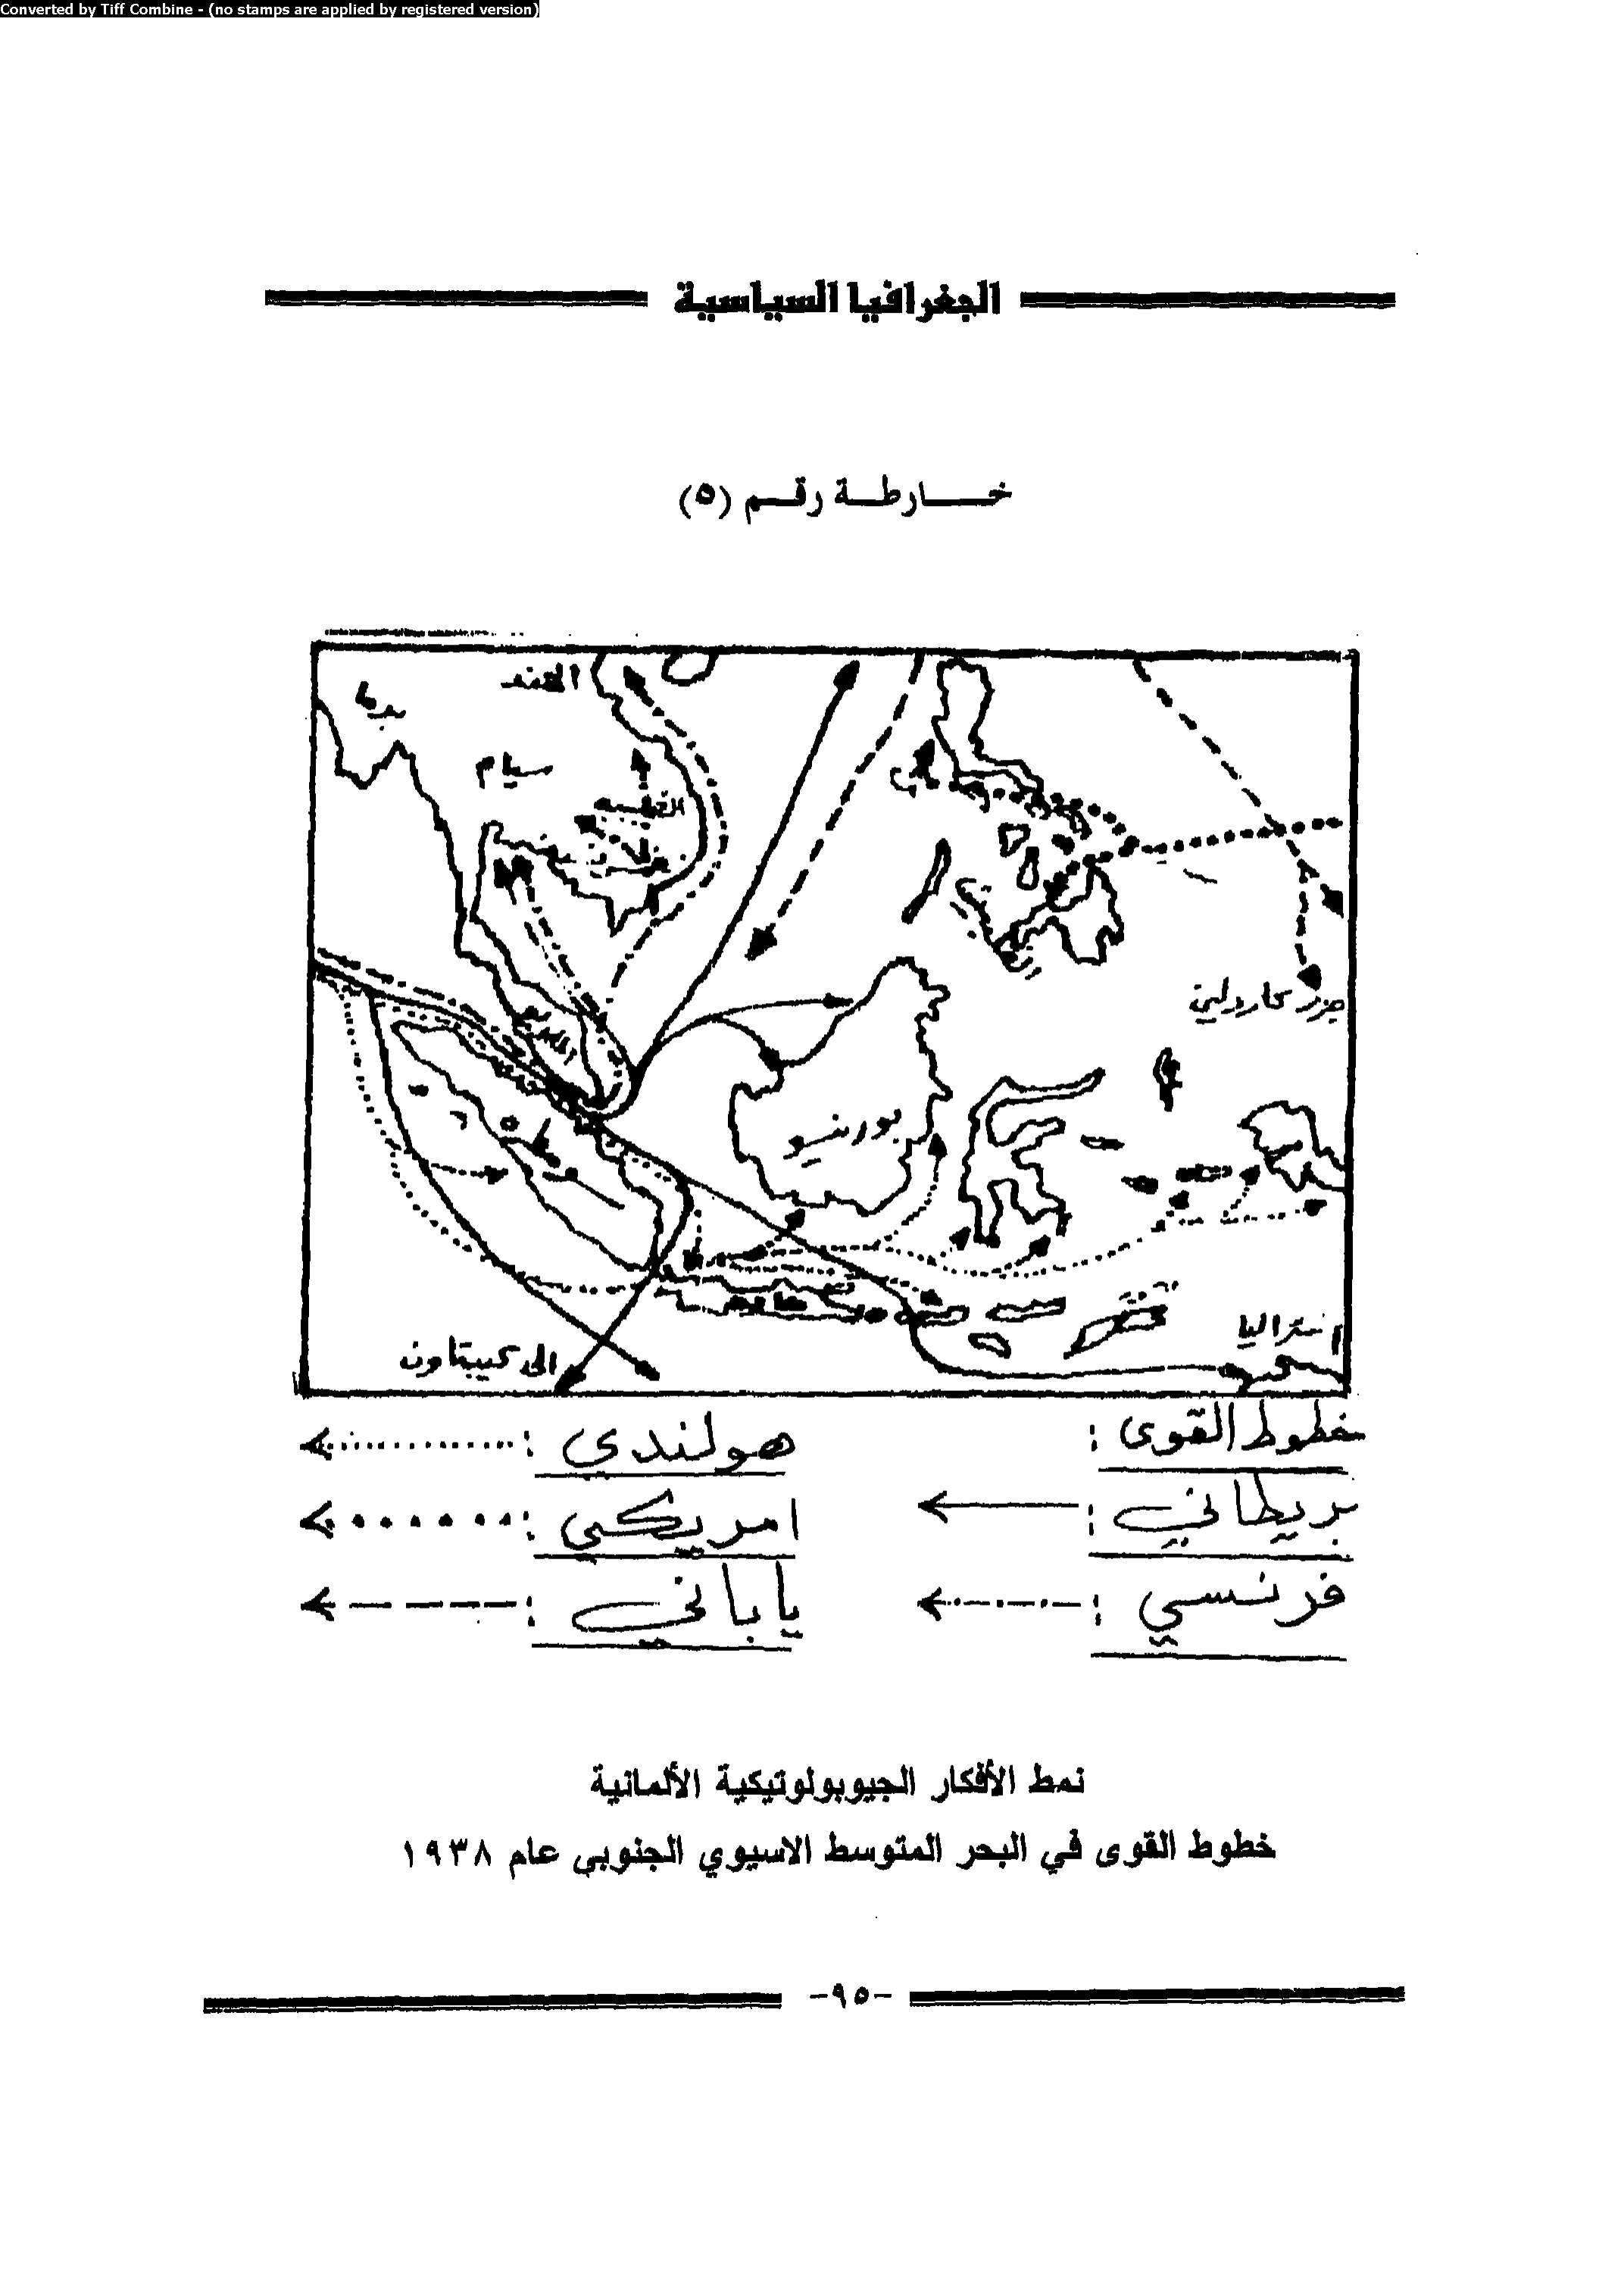 Converted by Tiff Combine - (no stamps are applied by registered version)
الجغرافيا السياسية
خارطة رقم (٥)
الهند
بورما
سيام
الفرنسية
جزر كارولين
بورنيو
استراليا
الى كيبتاون
خطوط القوى :
هولندى :
بريطاني :
امريكي :
فرنسي :
ياباني :
نمط الأفكار الجيوبولوتيكية الألمانية
خطوط القوى في البحر المتوسط الاسيوي الجنوبي عام ١٩٣٨
-٩٥-